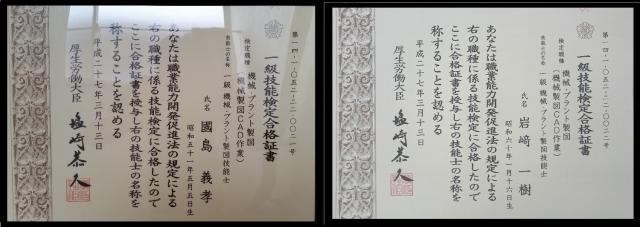 第一四-一-〇五二-二-〇〇二一号
一級技能検定合格証書
検定職種
機械・プラント製図
(機械製図CAD作業)
技能士の名称
一級機械・プラント製図技能士
氏名
國島義孝
昭和五十一年五月五日生
あなたは職業能力開発促進法の規定による
右の職種に係る技能検定に合格したので
ここに合格証書を授与し右の技能士の名称を
称することを認める
平成二十七年三月十三日
厚生労働大臣
塩崎恭久
第一四-一-〇五二-二-〇〇二二号
一級技能検定合格証書
検定職種
機械・プラント製図
(機械製図CAD作業)
技能士の名称
一級機械・プラント製図技能士
氏名
岩﨑一樹
昭和六十年一月十六日生
あなたは職業能力開発促進法の規定による
右の職種に係る技能検定に合格したので
ここに合格証書を授与し右の技能士の名称を
称することを認める
平成二十七年三月十三日
厚生労働大臣
塩崎恭久